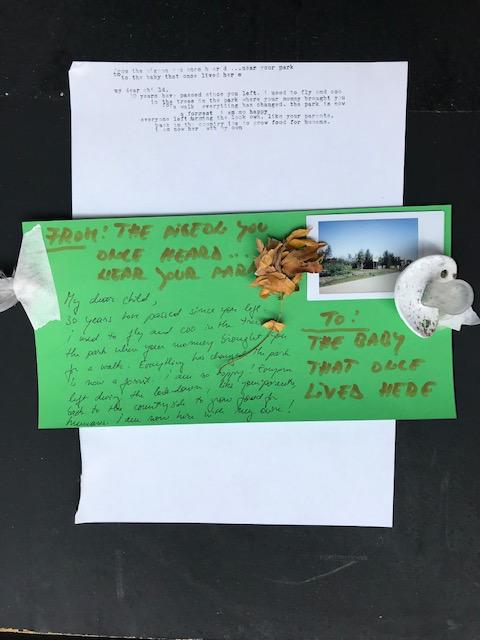 from the pigeon you once hear d ...near your park
to the baby that once lived her e
my dear chi ld,
30 years have passed since you left. i used to fly and coo
in the trees in the park where your mommy brought you
for a walk. everything has changed. the park is now
a forrest. i am so happy
everyone left during the lock own, like your parents,
back to the country ide to grow food for humans.
i am now here with my own
FROM: THE PIGEON YOU
ONCE HEARD...
NEAR YOUR PARK
My dear child,
30 years have passed since you left.
i used to fly and coo in the trees
the park when your mommy brought you
for a walk. Everything has changed. The park
is now a forest. i am so happy! Everyone
left during the lockdown, like your parents,
back to the countryside to grow food for
humans. I am now here with my dove!
TO:
THE BABY
THAT ONCE
LIVED HERE